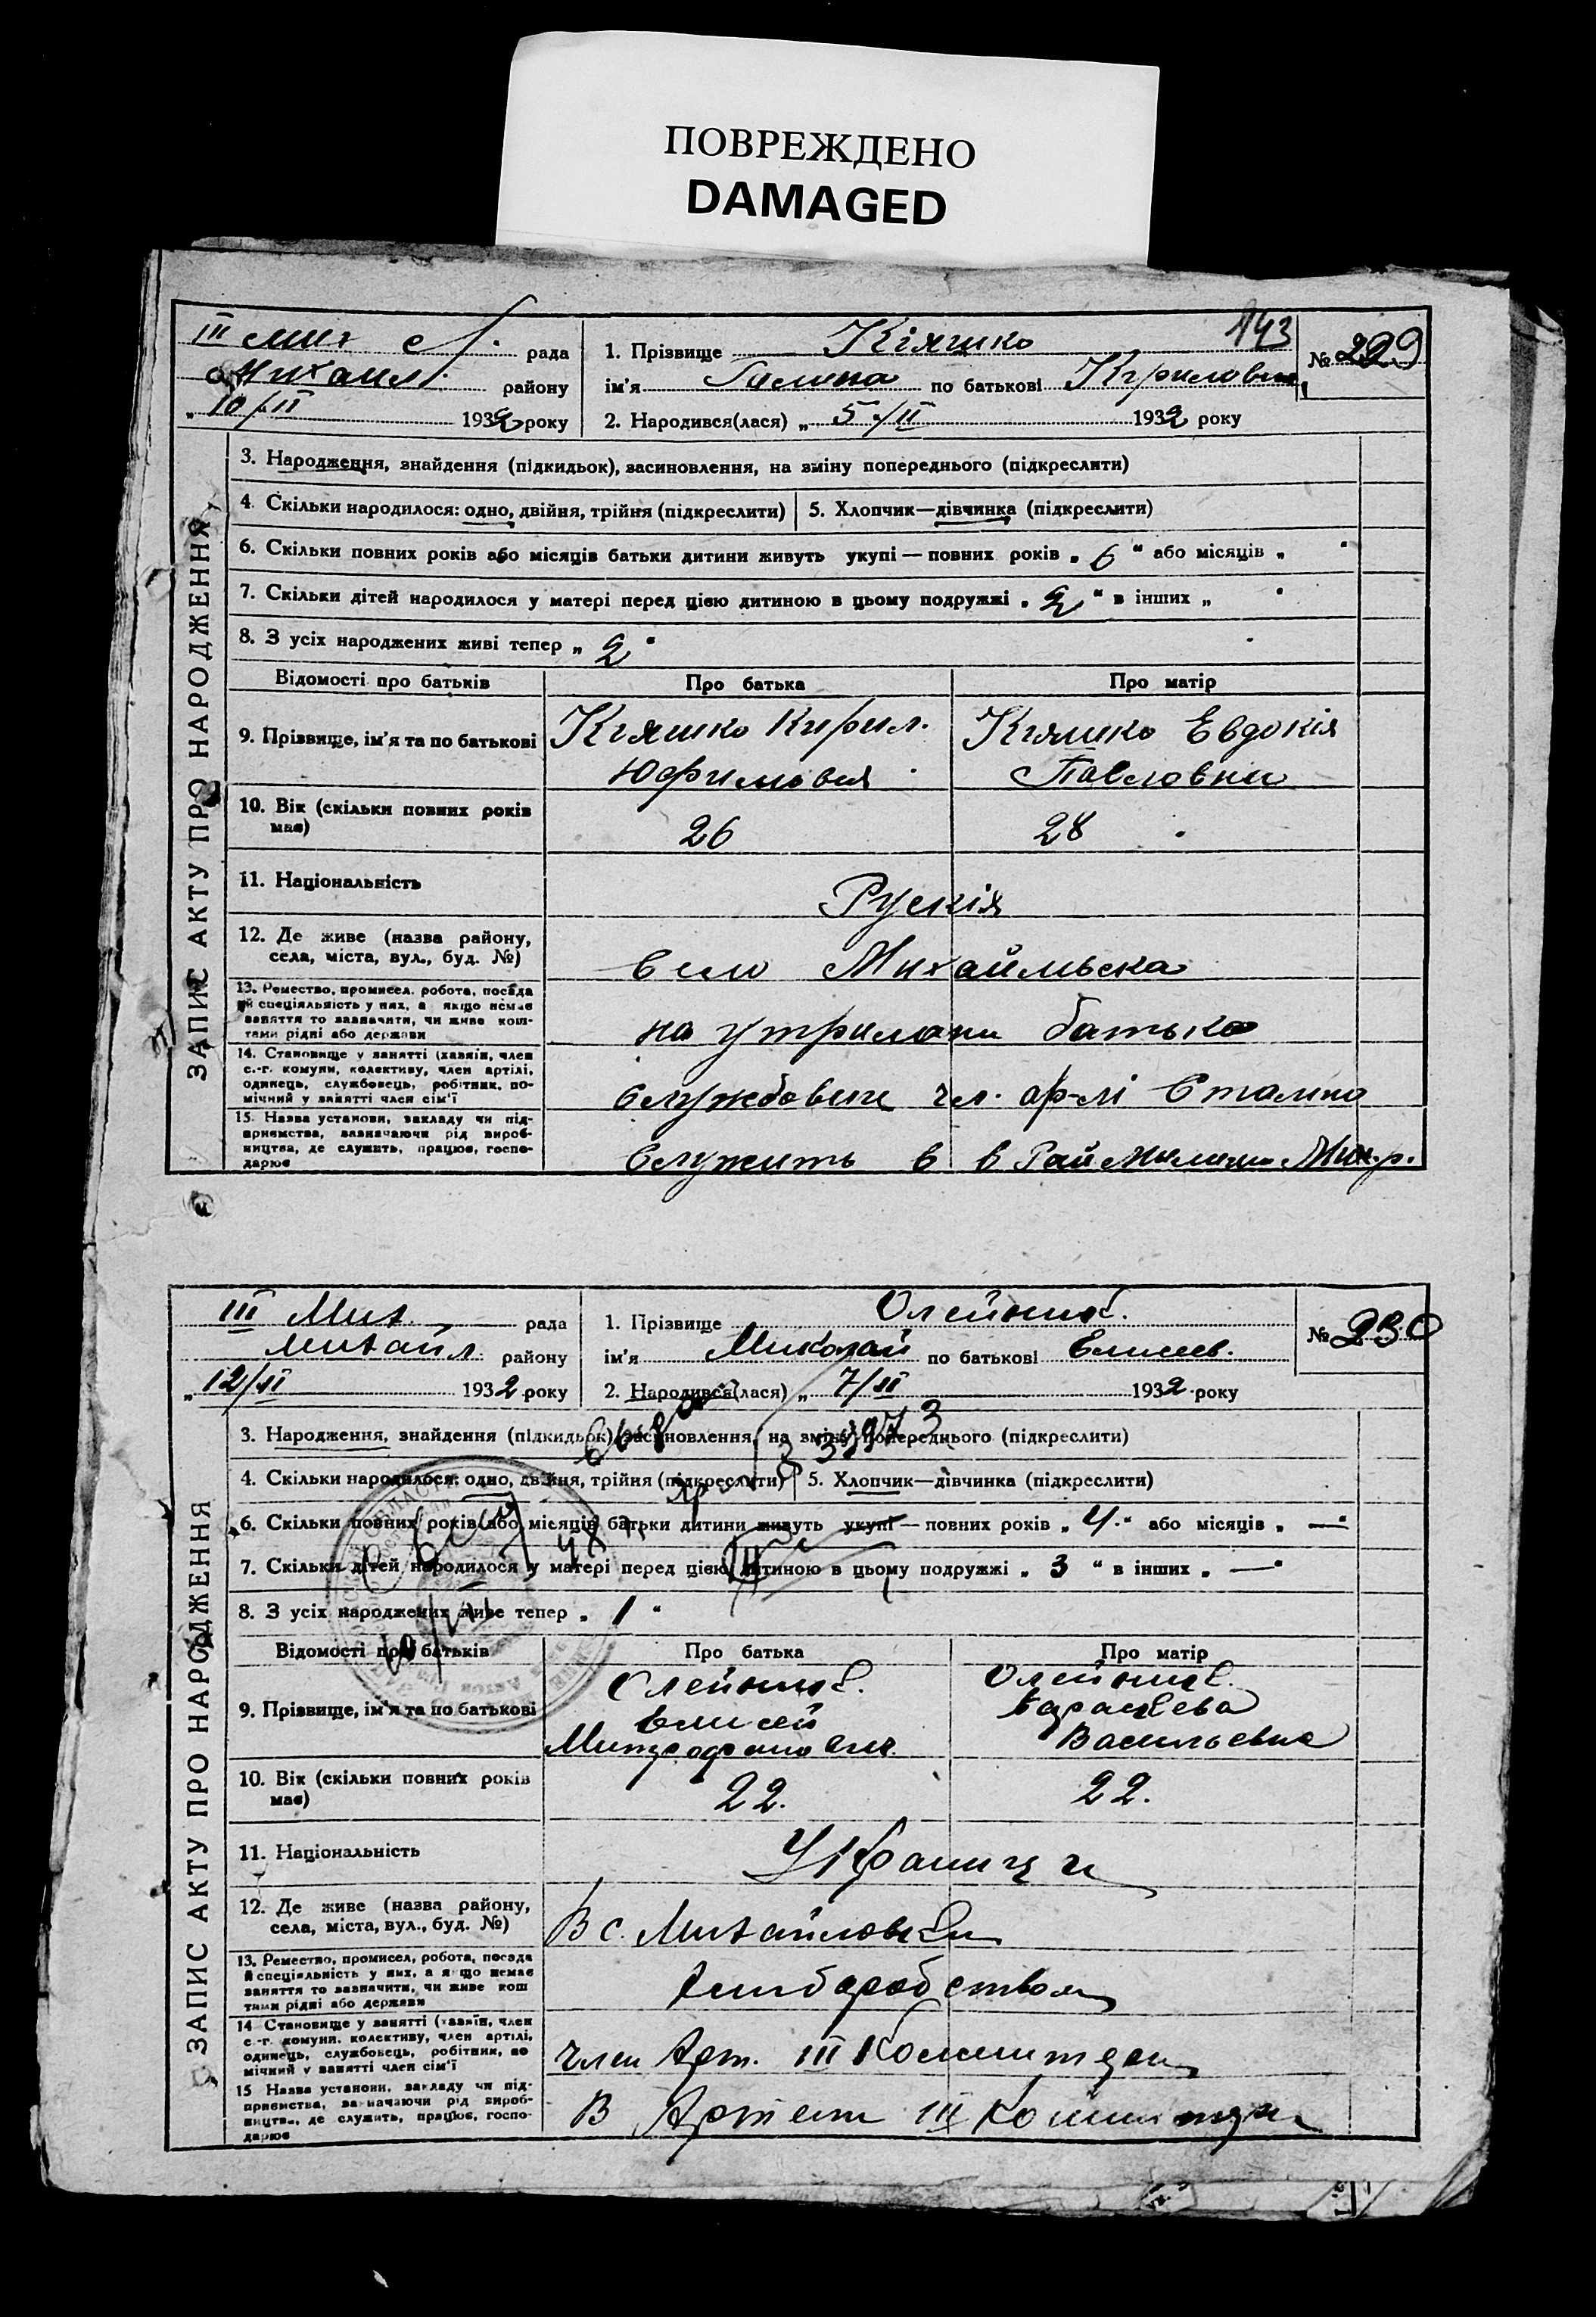 ПОВРЕЖДЕНО
DAMAGED
143
III Мих рада
Михаил. району
„ 10/II 1932 року
1. Прізвище Кіяшко
№ 229
ім'я Галина по батькові Кириловна
2. Народився(лася) „ 5/II 1932 року
ЗАПИС АКТУ ПРО НАРОДЖЕННЯ
3. Народження, знайдення (підкидьок), засиновлення, на зміну попереднього (підкреслити)
4. Скільки народилося: одно, двійня, трійня (підкреслити)
5. Хлопчик—дівчинка (підкреслити)
6. Скільки повних років або місяців батьки дитини живуть укупі — повних років „ 6 “ або місяців „ “
7. Скільки дітей народилося у матері перед цією дитиною в цьому подружжі „ 2 “ в інших „ “
8. З усіх народжених живі тепер „ 2 “
Відомості про батьків Про батька Про матір
9. Прізвище, ім'я та по батькові
Кияшко Кирил.
Юфимовия
Кияшко Евдокія
Павловна
10. Вік (скільки повних років має)
26 28
11. Національність
Рускія
12. Де живе (назва району, села, міста, вул., буд. №)
село Михайлвска
13. Ремество, промисел, робота, посада
й спеціяльність у них, а якщо немає
заняття то зазначити, чи живе кош-
тами рідні або держави
на утримани батька
14. Становище у занятті (хазяїн, член
с.-г. комуни, колективу, член артілі,
одинець, службовець, робітник, по-
мічний у занятті член сім'ї
службовец чл. ар-лі Сталина
15. Назва установи, закладу чи під-
приємства, зазначаючи рід вироб-
ництва, де служить, працює, госпо-
дарює
служить в в Рай Мих.р.
III Мих. рада
Михайл. району
„ 12/II 1932 року
1. Прізвище Олейник.
№ 230
ім'я Миколай по батькові Елисеев.
2. Народився(лася) „ 7/II 1932 року
ЗАПИС АКТУ ПРО НАРОДЖЕННЯ
3. Народження, знайдення (підкидьок), засиновлення, на зміну попереднього (підкреслити)
4. Скільки народилося: одно, двійня, трійня (підкреслити)
5. Хлопчик—дівчинка (підкреслити)
6. Скільки повних років або місяців батьки дитини живуть укупі — повних років „ 4. “ або місяців „ — “
7. Скільки дітей народилося у матері перед цією дитиною в цьому подружжі „ 3 “ в інших „ — “
8. З усіх народжених живе тепер „ 1 “
Відомості про батьків Про батька Про матір
9. Прізвище, ім'я та по батькові
Олейник.
Елисей
Митрофанович
Олейник.
Васильевна
10. Вік (скільки повних років має)
22. 22.
11. Національність
Украинци
12. Де живе (назва району, села, міста, вул., буд. №)
В с. Михайловки
13. Ремество, промисел, робота, посада
й спеціяльність у них, а якщо немає
заняття то зазначити, чи живе кош
тами рідні або держави
хлиборобством
14 Становище у занятті (хазяїн, член
с.-г. комуни, колективу, член артілі,
одинець, службовець, робітник, по
мічний у занятті член сім'ї
член Арт. III Коминтерн
15 Назва установи, закладу чи під-
приємства, зазначаючи рід вироб-
ництва, де служить, працює, госпо-
дарює
В Артели III Коминтерн